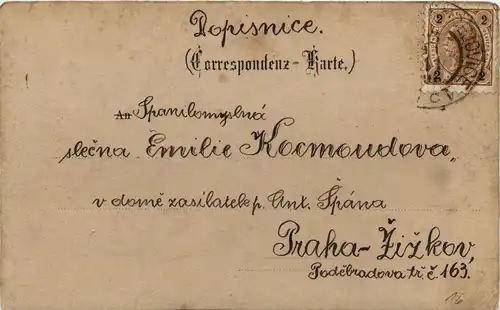 Dopisnice.
(Correspondenz-Karte.)
2 2
2 2
An Spanilomyslná
slečna Emilie Kocmoudova,
v domě zasilatek p. Ant. Špána
Praha-Žižkov,
Poděbradova tř. č. 163.
16